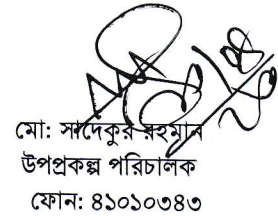 মো: সাদেকুর রহমান
উপপ্রকল্প পরিচালক
ফোন: ৪১০১০৩৪৩